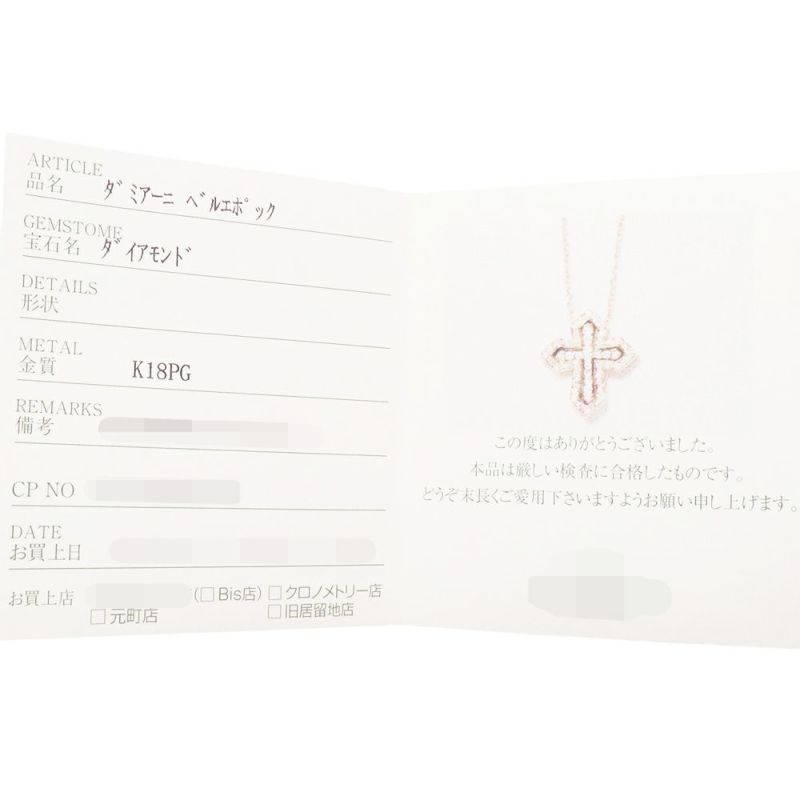 ARTICLE
品名 ﾀﾞﾐｱｰﾆ ﾍﾞﾙｴﾎﾟｯｸ
GEMSTOME
宝石名 ﾀﾞｲｱﾓﾝﾄﾞ
DETAILS
形状
METAL
金質 K18PG
REMARKS
備考
CP NO
DATE
お買上日
お買上店 (□Bis店) □クロノメトリー店
□元町店 □旧居留地店
この度はありがとうございました。
本品は厳しい検査に合格したものです。
どうぞ末長くご愛用下さいますようお願い申し上げます。